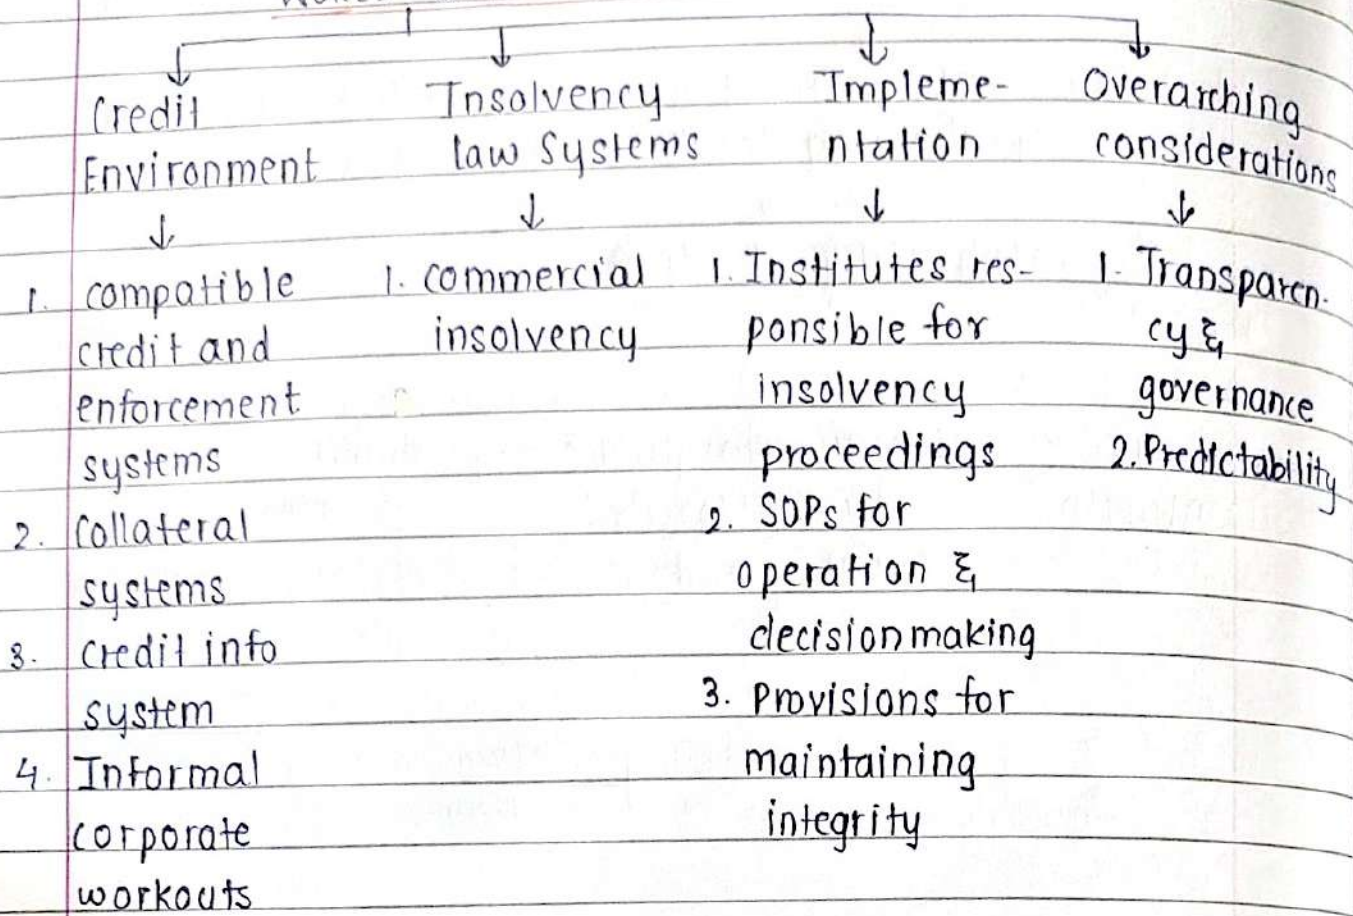 Credit
Environment
1. compatible
credit and
enforcement
systems
2. Collateral
systems
3. Credit info
system
4. Informal
corporate
workouts
Insolvency
law Systems
1. commercial
insolvency
Impleme-
ntation
1. Institutes res-
ponsible for
insolvency
proceedings
2. SOPs for
operation &
decision making
3. Provisions for
maintaining
integrity
Overarching
considerations
1. Transparen-
cy &
governance
2. Predictability